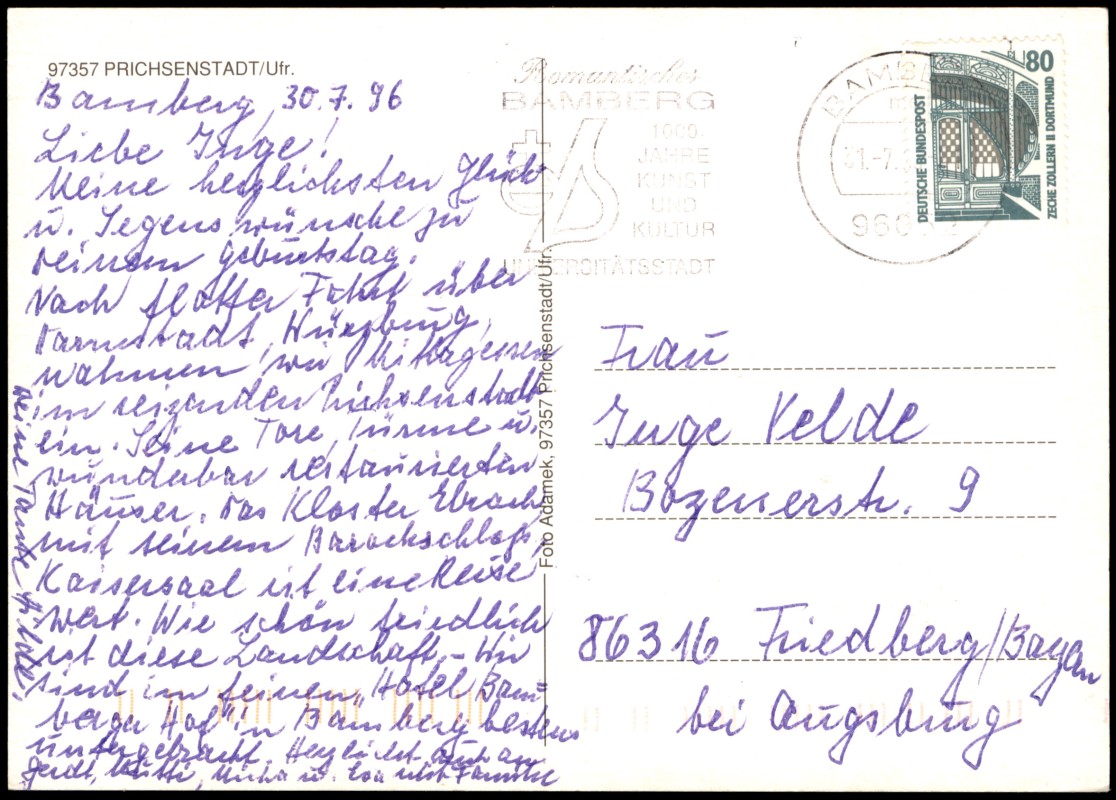 97357 PRICHSENSTADT/Ufr.
Bamberg, 30.7.96
Liebe Inge!
Meine herzlichsten Glück
u. Segenswünsche zu
deinem Geburtstag.
Nach flotter Fahrt über
Darmstadt, Würzburg,
nahmen wir Mittagessen
im reizenden Prichsenstadt
ein. Seine Tore, Türme u.
wunderbar restaurierten
Häuser. Das Kloster Ebrach
mit seinem Barockschloß,
Kaisersaal ist eine Reise
wert. Wie schön friedlich
ist diese Landschaft. – Wir
sind im feinem Hotel "Bam=
berger Hof" in Bamberg bestens
untergebracht. Herzlichst auch an
Gerdt, Mutti, Micha u. Eva mit Familie
Deine Tante
Foto Adamek, 97357 Prichsenstadt/Ufr.
Romantisches
BAMBERG
1000
JAHRE
KUNST
UND
KULTUR
UNIVERSITÄTSSTADT
BAMBERG
31.-7.
96052
80
DEUTSCHE BUNDESPOST
ZECHE ZOLLERN II DORTMUND
Frau
Inge Velde
Bozenerstr. 9
86316 Friedberg/Bayern
bei Augsburg